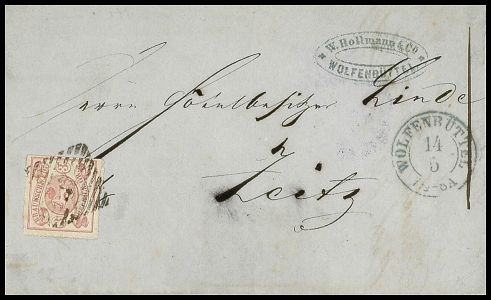 W. Hollmann & Co
WOLFENBÜTTEL
Herrn Hôtelbesitzer Linde
Zeitz
WOLFENBÜTTEL
14
5